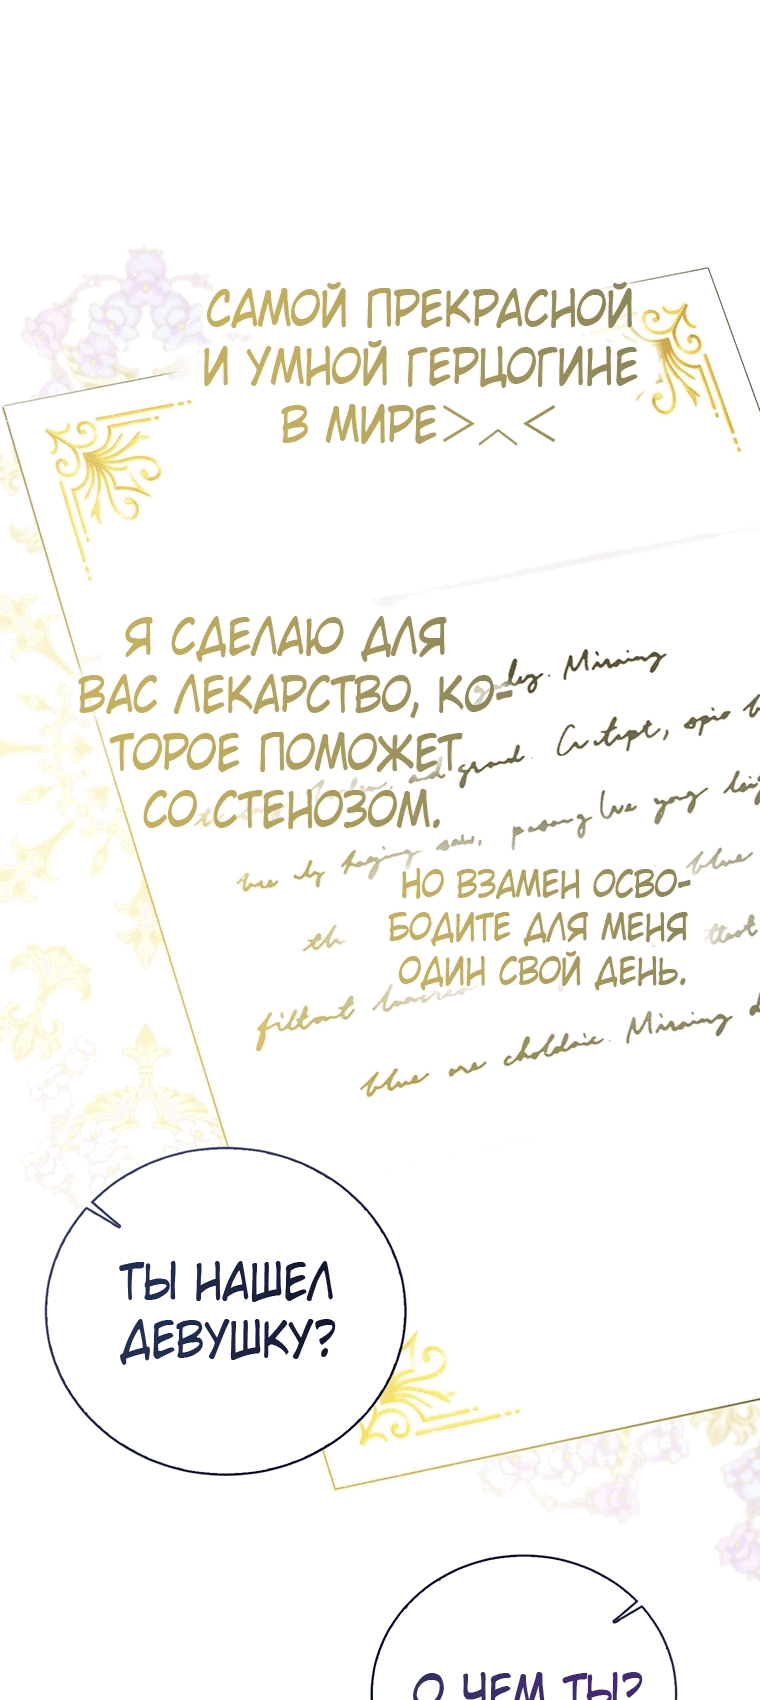 САМОЙ ПРЕКРАСНОЙ
И УМНОЙ ГЕРЦОГИНЕ
В МИРЕ>︿<
Я СДЕЛАЮ ДЛЯ
ВАС ЛЕКАРСТВО, КО-
ТОРОЕ ПОМОЖЕТ
СО СТЕНОЗОМ.
Miraing
and
blue
НО ВЗАМЕН ОСВО-
БОДИТЕ ДЛЯ МЕНЯ
ОДИН СВОЙ ДЕНЬ.
th
blue are Miraing
ТЫ НАШЕЛ
ДЕВУШКУ?
О ЧЕМ ТЫ?